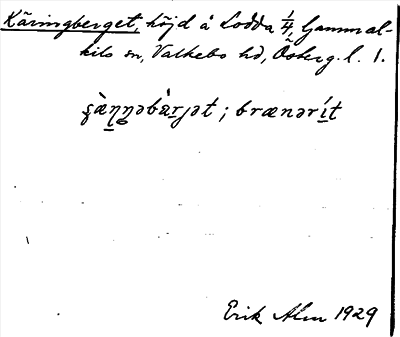 Käringberget, höjd å Lodda 1/4, Gammal-
kils sn, Valkebo hd, Östergl. l.
brænərít
Erik Alm 1929